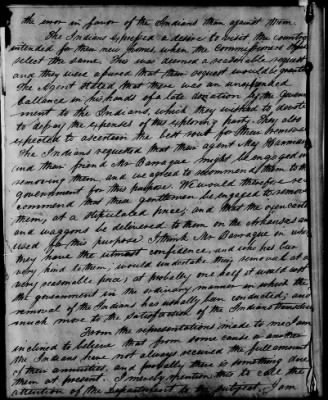 the more in favor of the Indians than against them.
The Indians expressed a desire to visit the country
intended for their new home when the Commissioners should
select the same. This was deemed a reasonable request
and they were assured that their request would be granted
The Agent stated that there was an unexpended
ballance in his hands of a late donation by the govern
ment to the Indians, which they wished to devote
to defray the expenses of this exploring party. They also
expected to ascertain the best rout for their removal
The Indians requested that their agent May Hannan
and their friend Mr Barraque might be engaged in
removing them, and we agreed to recommend them to the
government for this purpose. We would therefore re
commend that these gentlemen be engaged to remove
them, at a stipulated price, and that the oxen carts
and waggons be delivered to them on the Arkansas and
used for this purpose. I think Mr Barraque in whom
they have the utmost confidence and who has been
very kind to them, would undertake their removal at a
very reasonable price, at probably one half it would cost
the government in the ordinary manner in which the
removal of the Indians has usually been conducted; and
much more to the satisfaction of the Indians themselves
From the representations made to me I am
inclined to believe that from some cause or another
the Indians have not always received the full amount
of their annuities, and probably there is something due
them at present. I merely mention this to call the
attention of the Department to the subject. I am